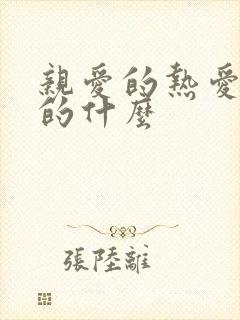 親愛的熱愛
的什麼
張陸離